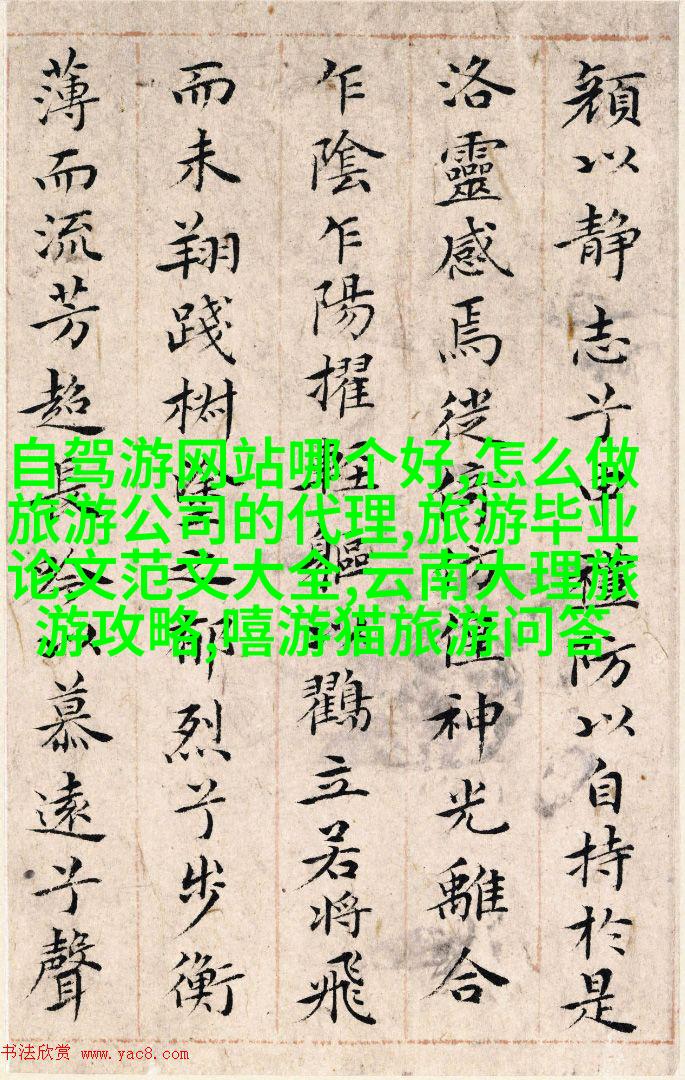 顔以静志兮申禮防以自持於是
洛靈感焉徙倚彷徨神光離合
乍陰乍陽擢輕軀以鸖立若將飛
而未翔踐椒塗之郁烈兮步衡
薄而流芳超長吟以慕遠兮聲
自驾游网站哪个好,怎么做
旅游公司的代理,旅游毕业
论文范文大全,云南大理旅
游攻略,嘻游猫旅游问答
书法欣赏 www.yac8.com